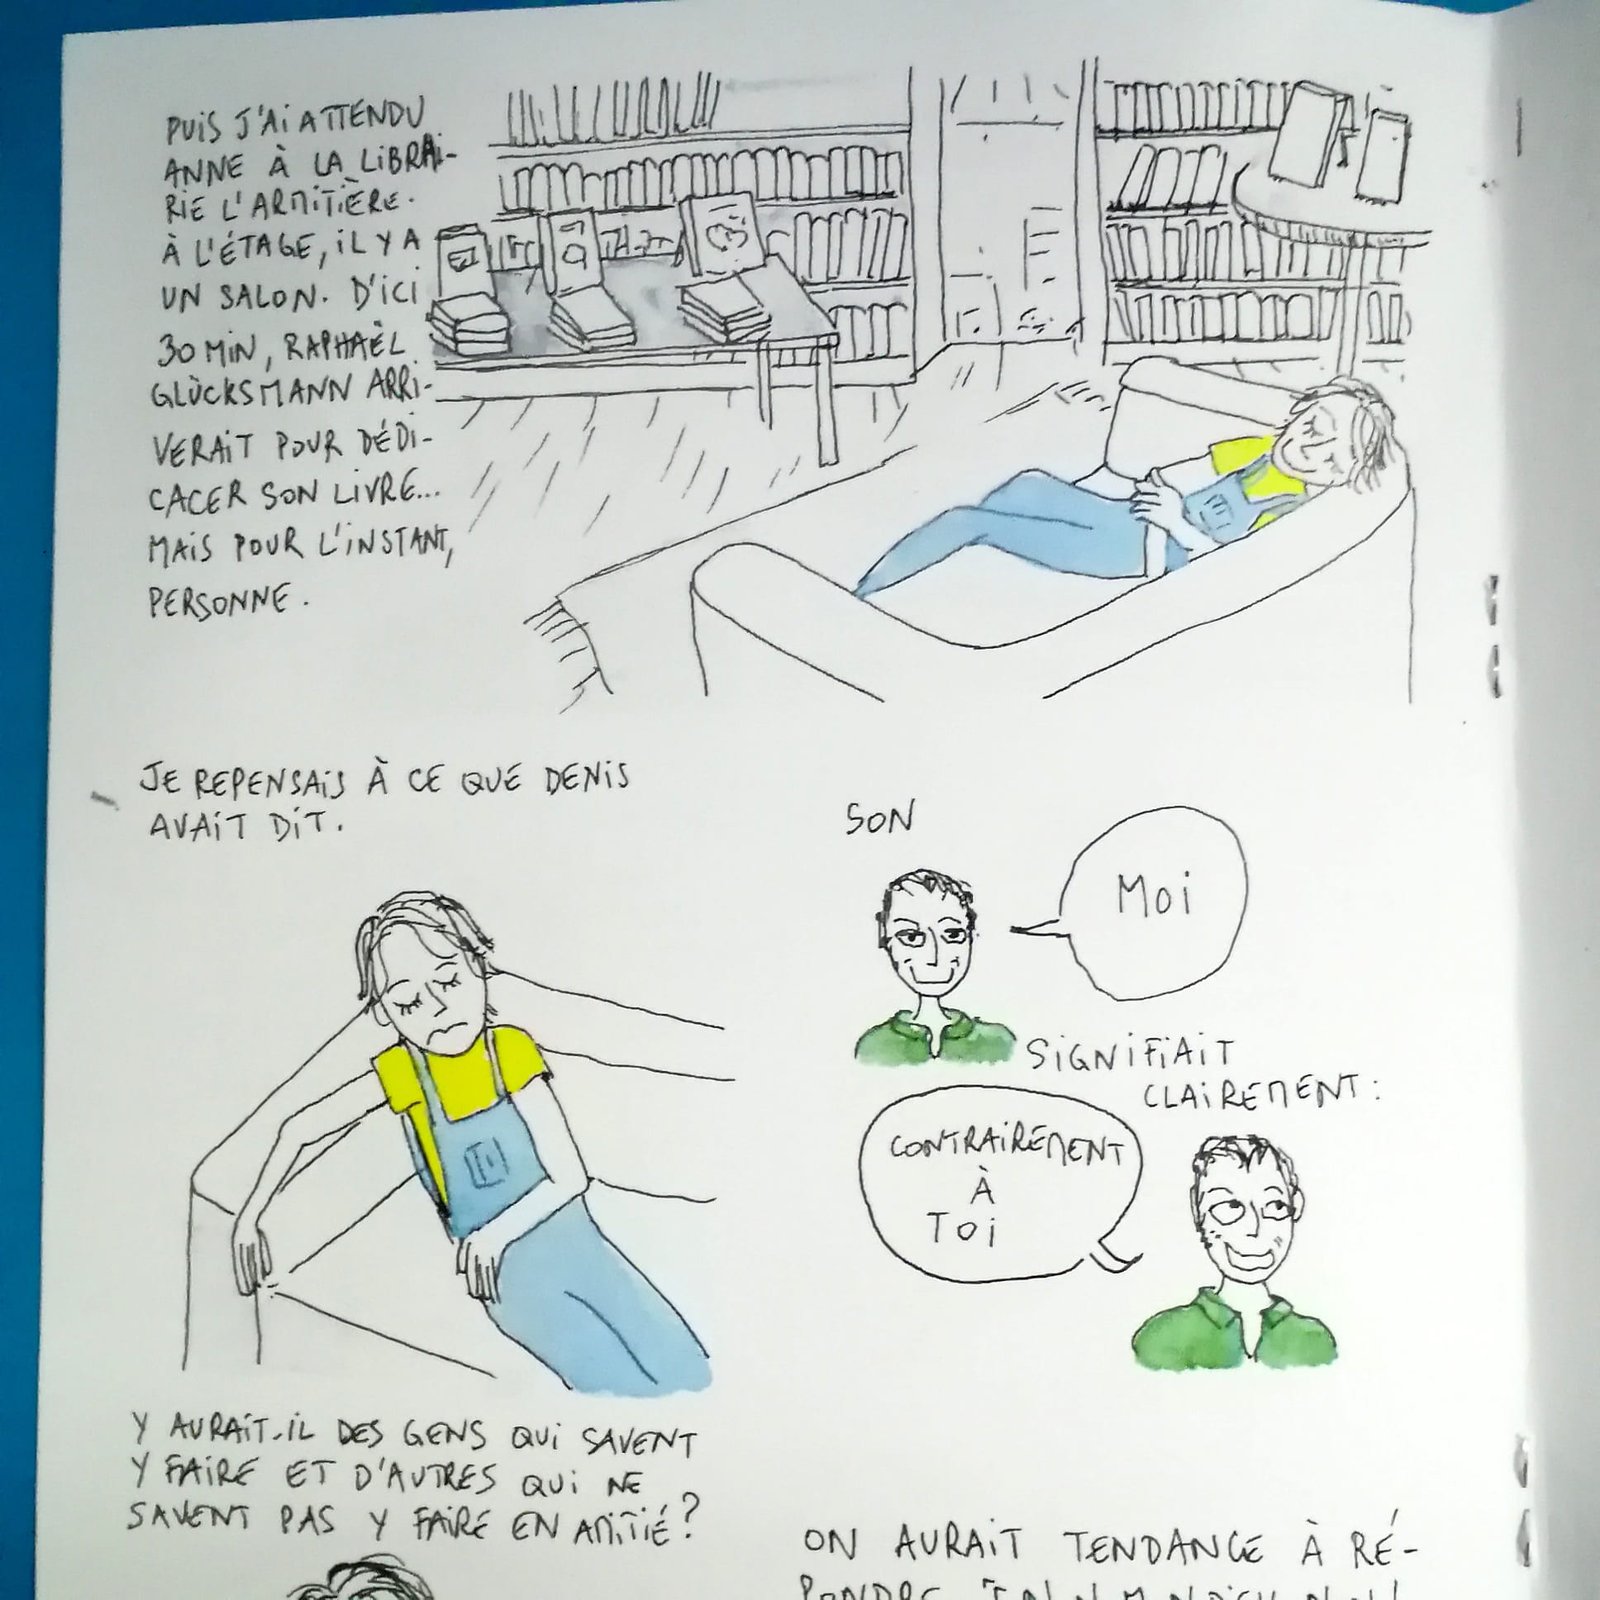 PUIS J'AI ATTENDU
ANNE À LA LIBRAI-
RIE L'ARMITIÈRE.
À L'ÉTAGE, IL Y A
UN SALON. D'ICI
30 MIN, RAPHAËL
GLÜCKSMANN ARRI-
VERAIT POUR DÉDI-
CACER SON LIVRE...
MAIS POUR L'INSTANT,
PERSONNE.
JE REPENSAIS À CE QUE DENIS
AVAIT DIT.
SON
MOI
SIGNIFIAIT
CLAIREMENT:
CONTRAIREMENT
À
TOI
Y AURAIT-IL DES GENS QUI SAVENT
Y FAIRE ET D'AUTRES QUI NE
SAVENT PAS Y FAIRE EN AMITIÉ?
ON AURAIT TENDANCE À RÉ-
PONDRE